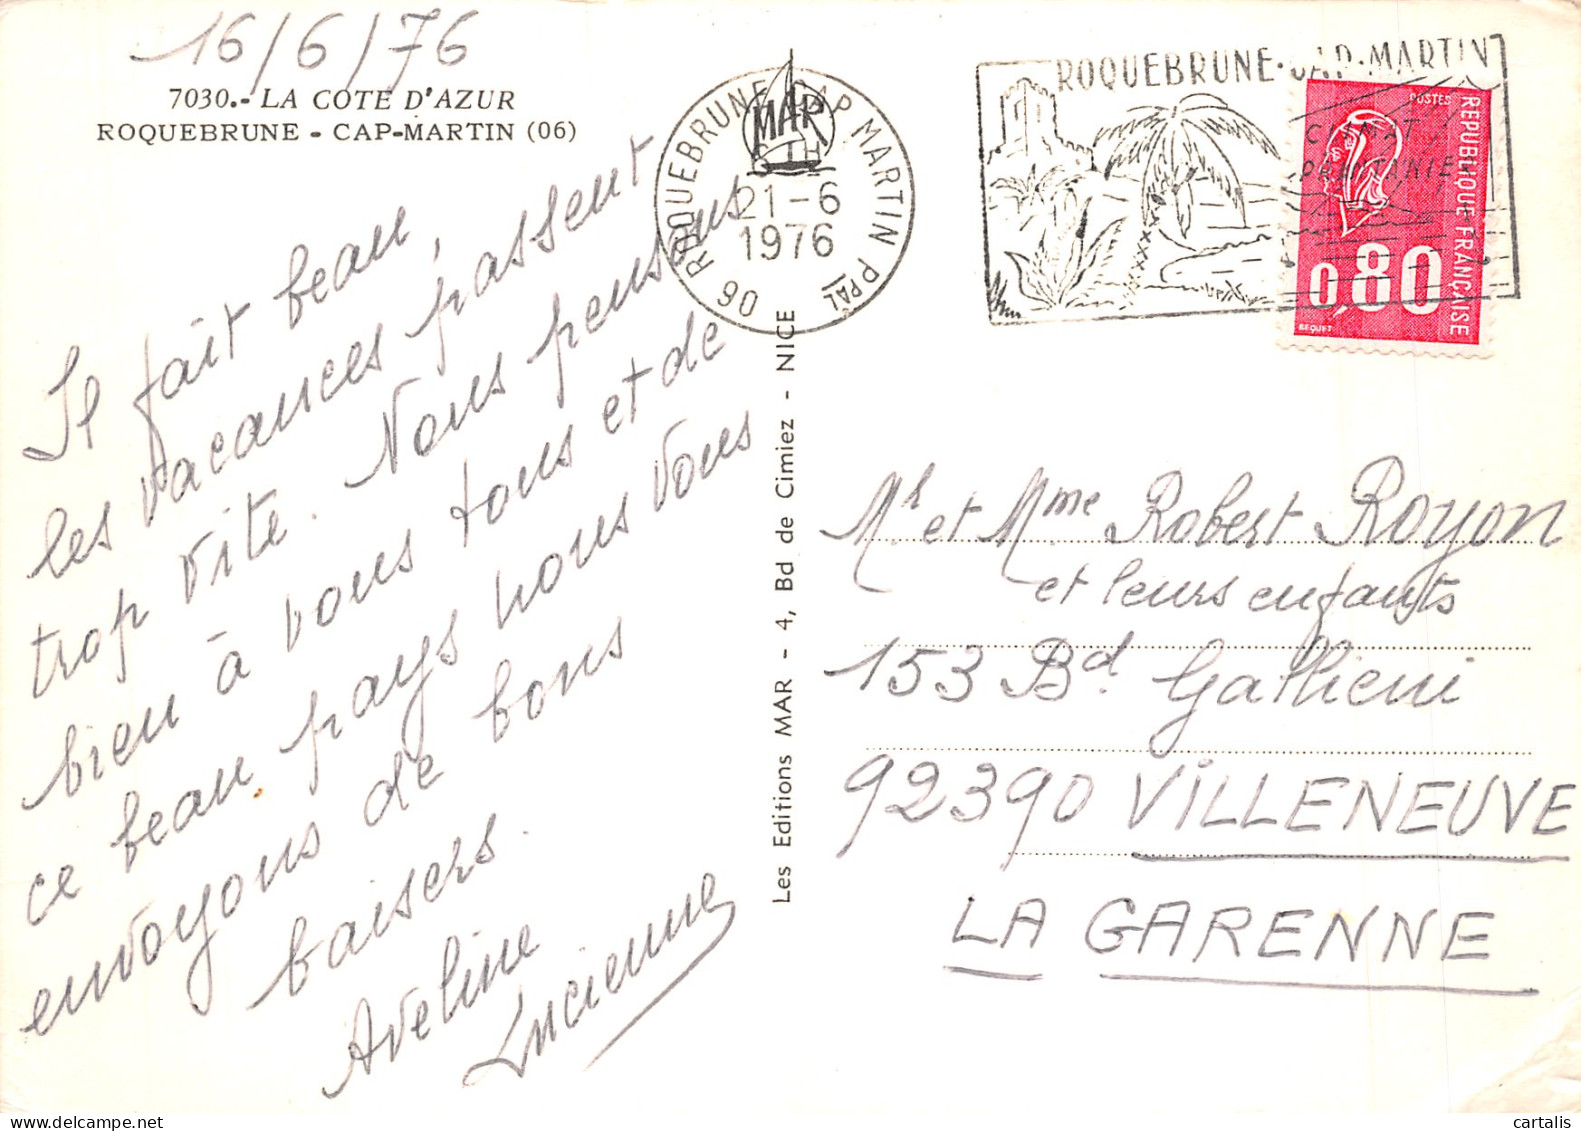 16/6/76
7030.- LA COTE D'AZUR
ROQUEBRUNE - CAP-MARTIN (06)
Il fait beau,
les vacances passent
trop vite. Nous pensons
bien à vous tous et de
ce beau pays nous vous
envoyons de bons
baisers.
Aveline
Lucienne
Les Editions MAR - 4, Bd de Cimiez - NICE
MAR
06 ROQUEBRUNE CAP MARTIN PPAL
21-6
1976
ROQUEBRUNE·CAP·MARTIN
CLIMAT
PRINTANIER
POSTES
REPUBLIQUE FRANÇAISE
0,80
BEQUET
Mr et Mme Robert Royon
et leurs enfants
153 Bd. Gallieni
92390 VILLENEUVE
LA GARENNE
cartalis